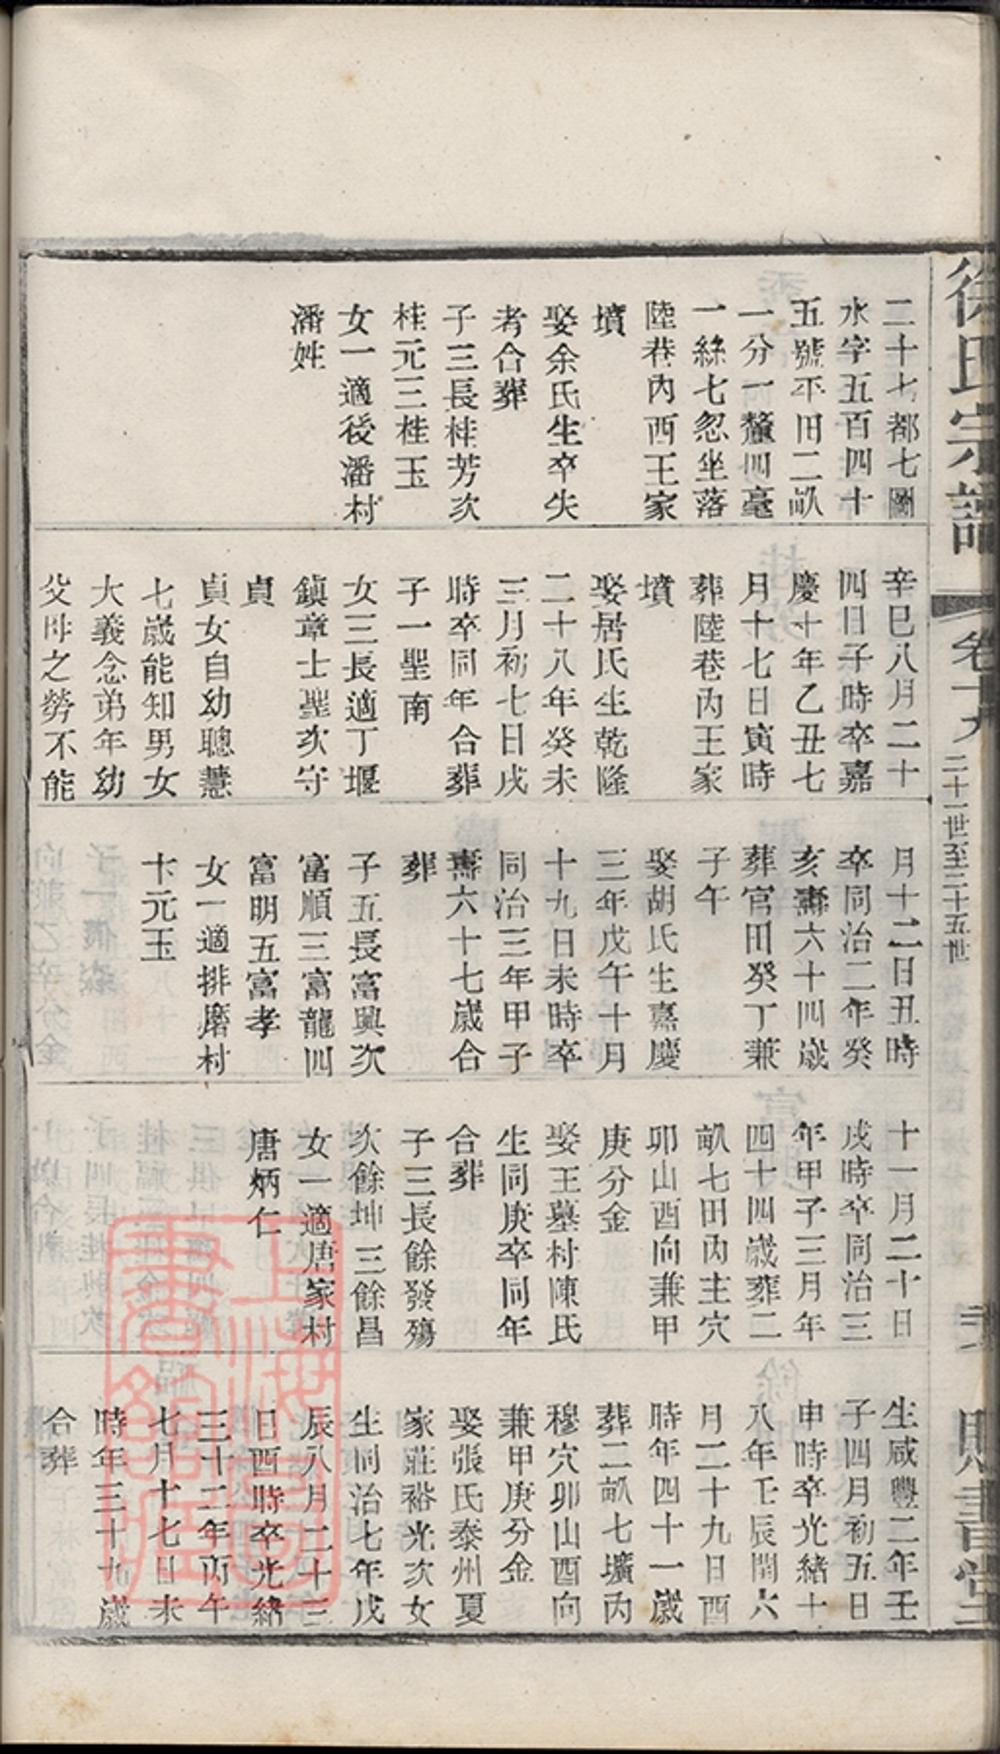 徐氏宗譜
卷十九
二十一世至二十五世
賜書堂
二十七都七圖
水字五百四十
五號平田二畝
一分一釐四毫
一絲七忽坐落
陸巷內西王家
墳
娶余氏生卒失
考合葬
子三長桂芳次
桂元三桂玉
女一適後潘村
潘姓
辛巳八月二十
四日子時卒嘉
慶十年乙丑七
月十七日寅時
葬陸巷內王家
墳
娶居氏生乾隆
二十八年癸未
三月初七日戌
時卒同年合葬
子一聖南
女三長適丁堰
鎮章士聖次守
貞
貞女自幼聰慧
七歲能知男女
大義念弟年幼
父母之勞不能
月十二日丑時
卒同治二年癸
亥壽六十四歲
葬官田癸丁兼
子午
娶胡氏生嘉慶
三年戊午十月
十九日未時卒
同治三年甲子
壽六十七歲合
葬
子五長富興次
富順三富龍四
富明五富孝
女一適排磨村
卞元玉
十一月二十日
戌時卒同治三
年甲子三月年
四十四歲葬二
畝七田內主穴
卯山酉向兼甲
庚分金
娶王墓村陳氏
生同庚卒同年
合葬
子三長餘發殤
次餘坤三餘昌
女一適唐家村
唐炳仁
生咸豐二年壬
子四月初五日
申時卒光緒十
八年壬辰閏六
月二十九日酉
時年四十一歲
葬二畝七壙內
穆穴卯山酉向
兼甲庚分金
娶張氏泰州夏
家莊裕光次女
生同治七年戊
辰八月二十三
日酉時卒光緒
三十二年丙午
七月十七日未
時年三十九歲
合葬
上海圖書館藏